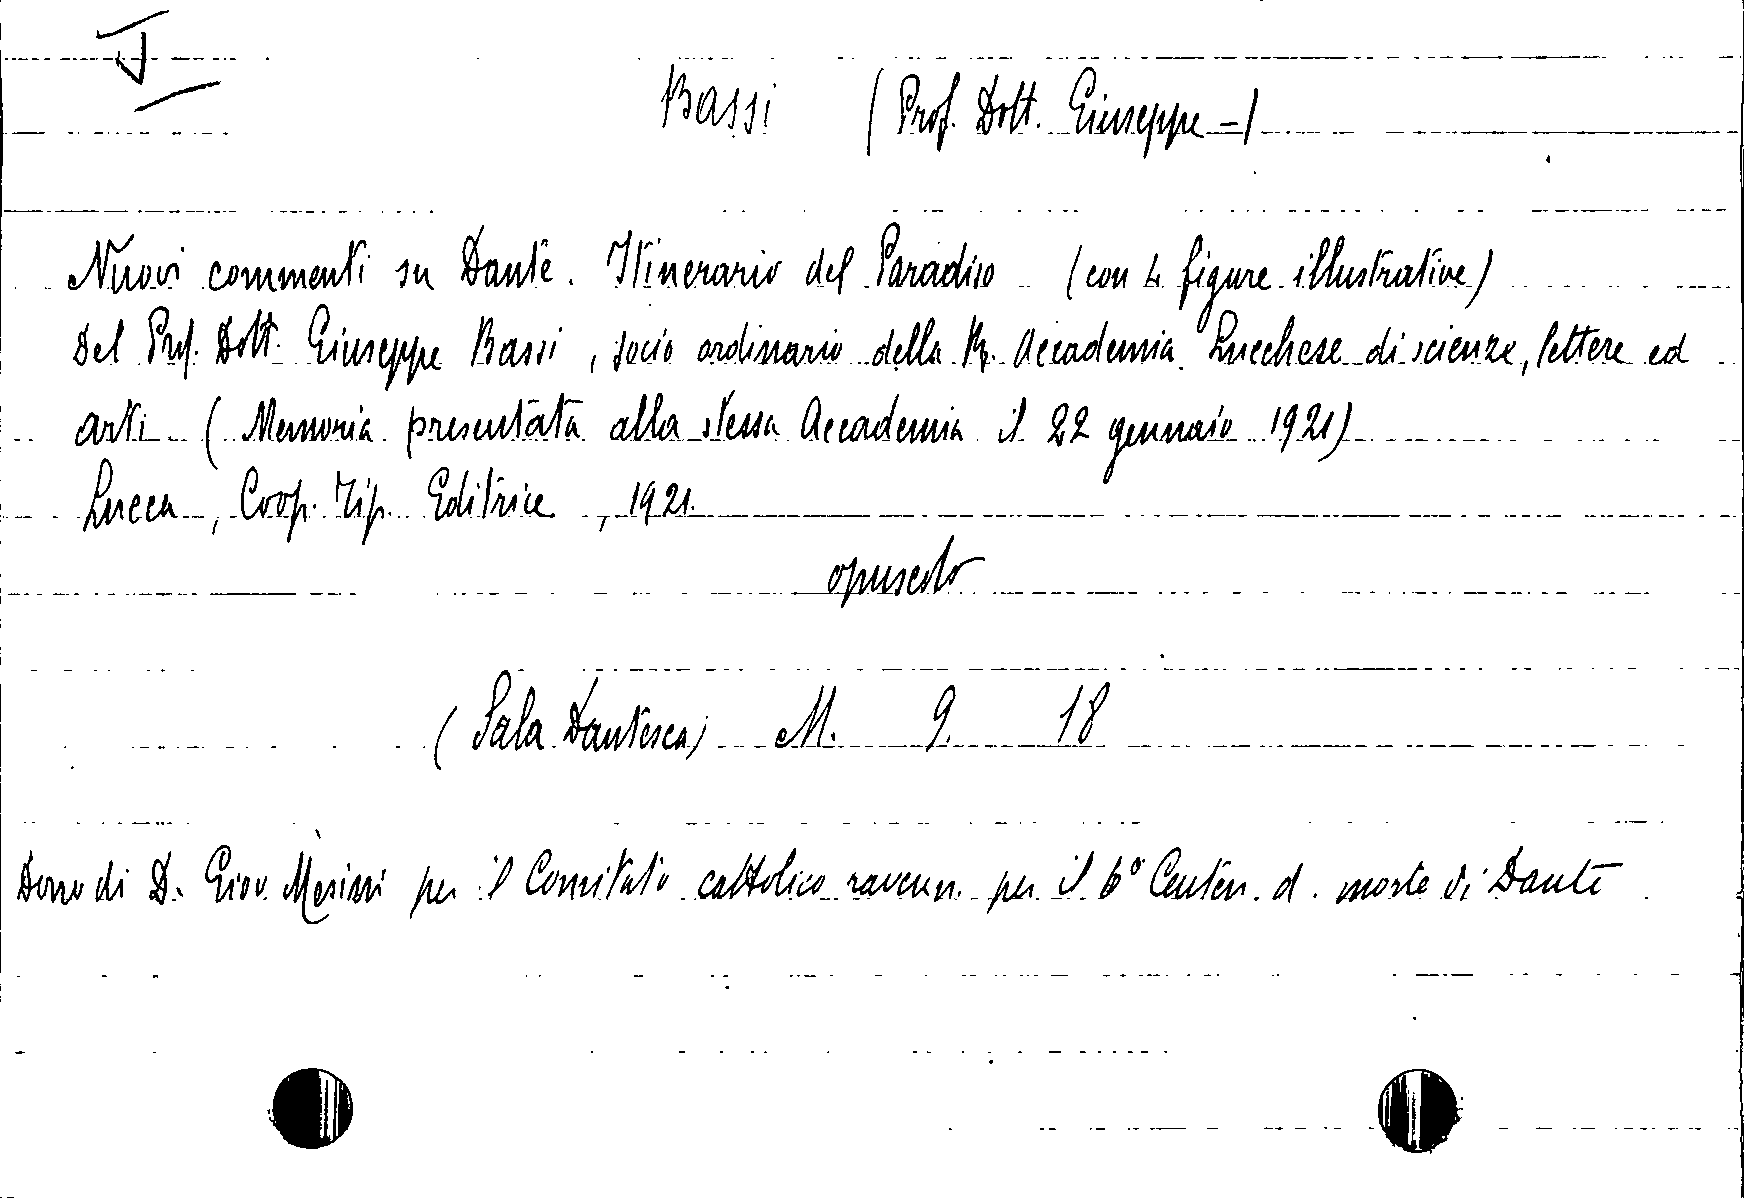 Bassi (Prof. Dott. Giuseppe -)
Nuovi commenti su Dante. Itinerario del Paradiso (con 4 figure illustrative)
Del Prof. Dott. Giuseppe Bassi, socio ordinario della R. Accademia Lucchese di scienze, lettere ed
arti (Memoria presentata alla stessa Accademia il 22 gennaio 1921)
Lucca, Coop. Tip. Editrice, 1921.
opuscolo
(Sala Dantesca) M. 9. 18
Dono di D. Giov. Mesini per il Comitato cattolico ravenn. per il 6° Centen. d. morte di Dante